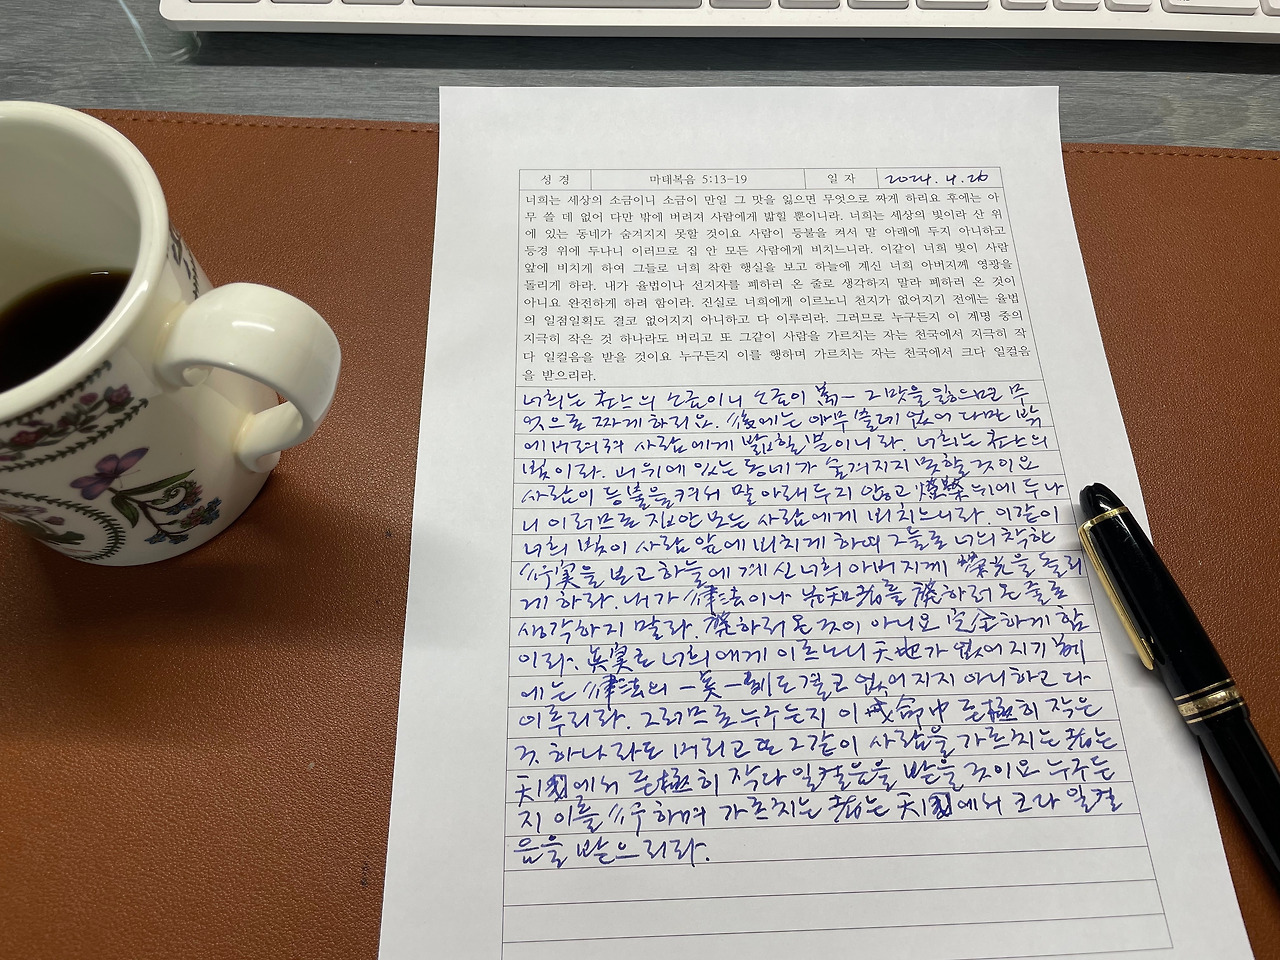 성 경 마태복음 5:13-19 일 자 2024. 4. 26
너희는 세상의 소금이니 소금이 만일 그 맛을 잃으면 무엇으로 짜게 하리요 후에는 아
무 쓸 데 없어 다만 밖에 버려져 사람에게 밟힐 뿐이니라. 너희는 세상의 빛이라 산 위
에 있는 동네가 숨겨지지 못할 것이요 사람이 등불을 켜서 말 아래에 두지 아니하고
등경 위에 두나니 이러므로 집 안 모든 사람에게 비치느니라. 이같이 너희 빛이 사람
앞에 비치게 하여 그들로 너희 착한 행실을 보고 하늘에 계신 너희 아버지께 영광을
돌리게 하라. 내가 율법이나 선지자를 폐하러 온 줄로 생각하지 말라 폐하러 온 것이
아니요 완전하게 하려 함이라. 진실로 너희에게 이르노니 천지가 없어지기 전에는 율법
의 일점일획도 결코 없어지지 아니하고 다 이루리라. 그러므로 누구든지 이 계명 중의
지극히 작은 것 하나라도 버리고 또 그같이 사람을 가르치는 자는 천국에서 지극히 작
다 일컬음을 받을 것이요 누구든지 이를 행하며 가르치는 자는 천국에서 크다 일컬음
을 받으리라.
너희는 의 소금이니 소금이 그 맛을 잃으면 무
엇으로 짜게 하리요. 後에는 아무 쓸데 없어 다만 밖
에 버려져 사람에게 밟힐 뿐이니라. 너희는 의
빛이라. 山 위에 있는 동네가 숨겨지지 못할 것이요
사람이 등불을 켜서 말 아래 두지 않고 燈檠 위에 두나
니 이러므로 집안 모든 사람에게 비치느니라. 이같이
너희 빛이 사람 앞에 비치게 하여 그들로 너희 착한
行實을 보고 하늘에 계신 너희 아버지께 榮光을 돌리
게 하라. 내가 律法이나 先知者를 廢하러 온 줄로
생각하지 말라. 廢하러 온 것이 아니요 完全하게 함
이라. 眞實로 너희에게 이르노니 天地가 없어지기 前
에는 律法의 一 一 도 결코 없어지지 아니하고 다
이루리라. 그러므로 누구든지 이 戒命中 至極히 작은
것 하나라도 버리고 또 그같이 사람을 가르치는 者는
天國에서 至極히 작다 일컬음을 받을 것이요 누구든
지 이를 行하며 가르치는 者는 天國에서 크다 일컬
음을 받으리라.